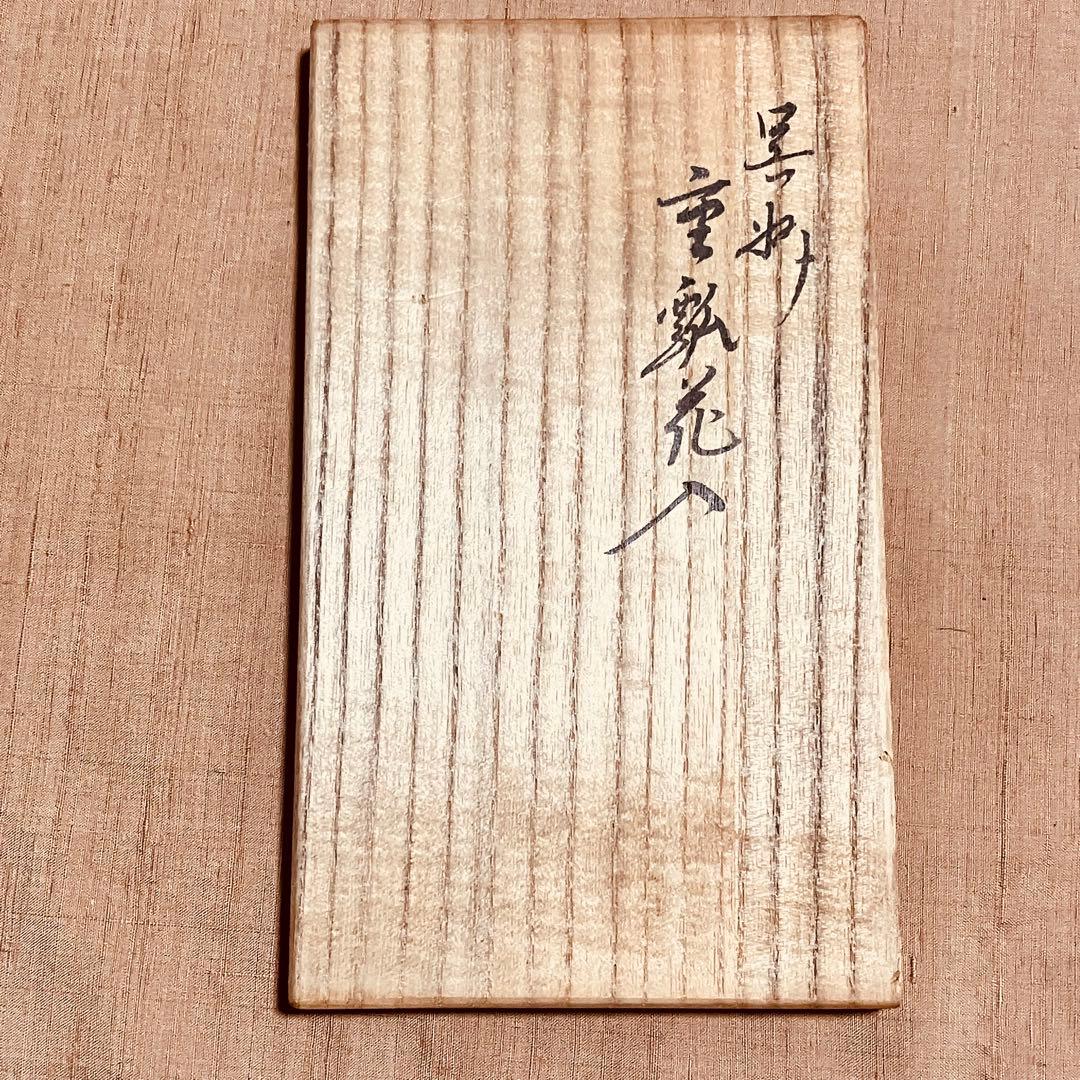 呉州
重瓢花入